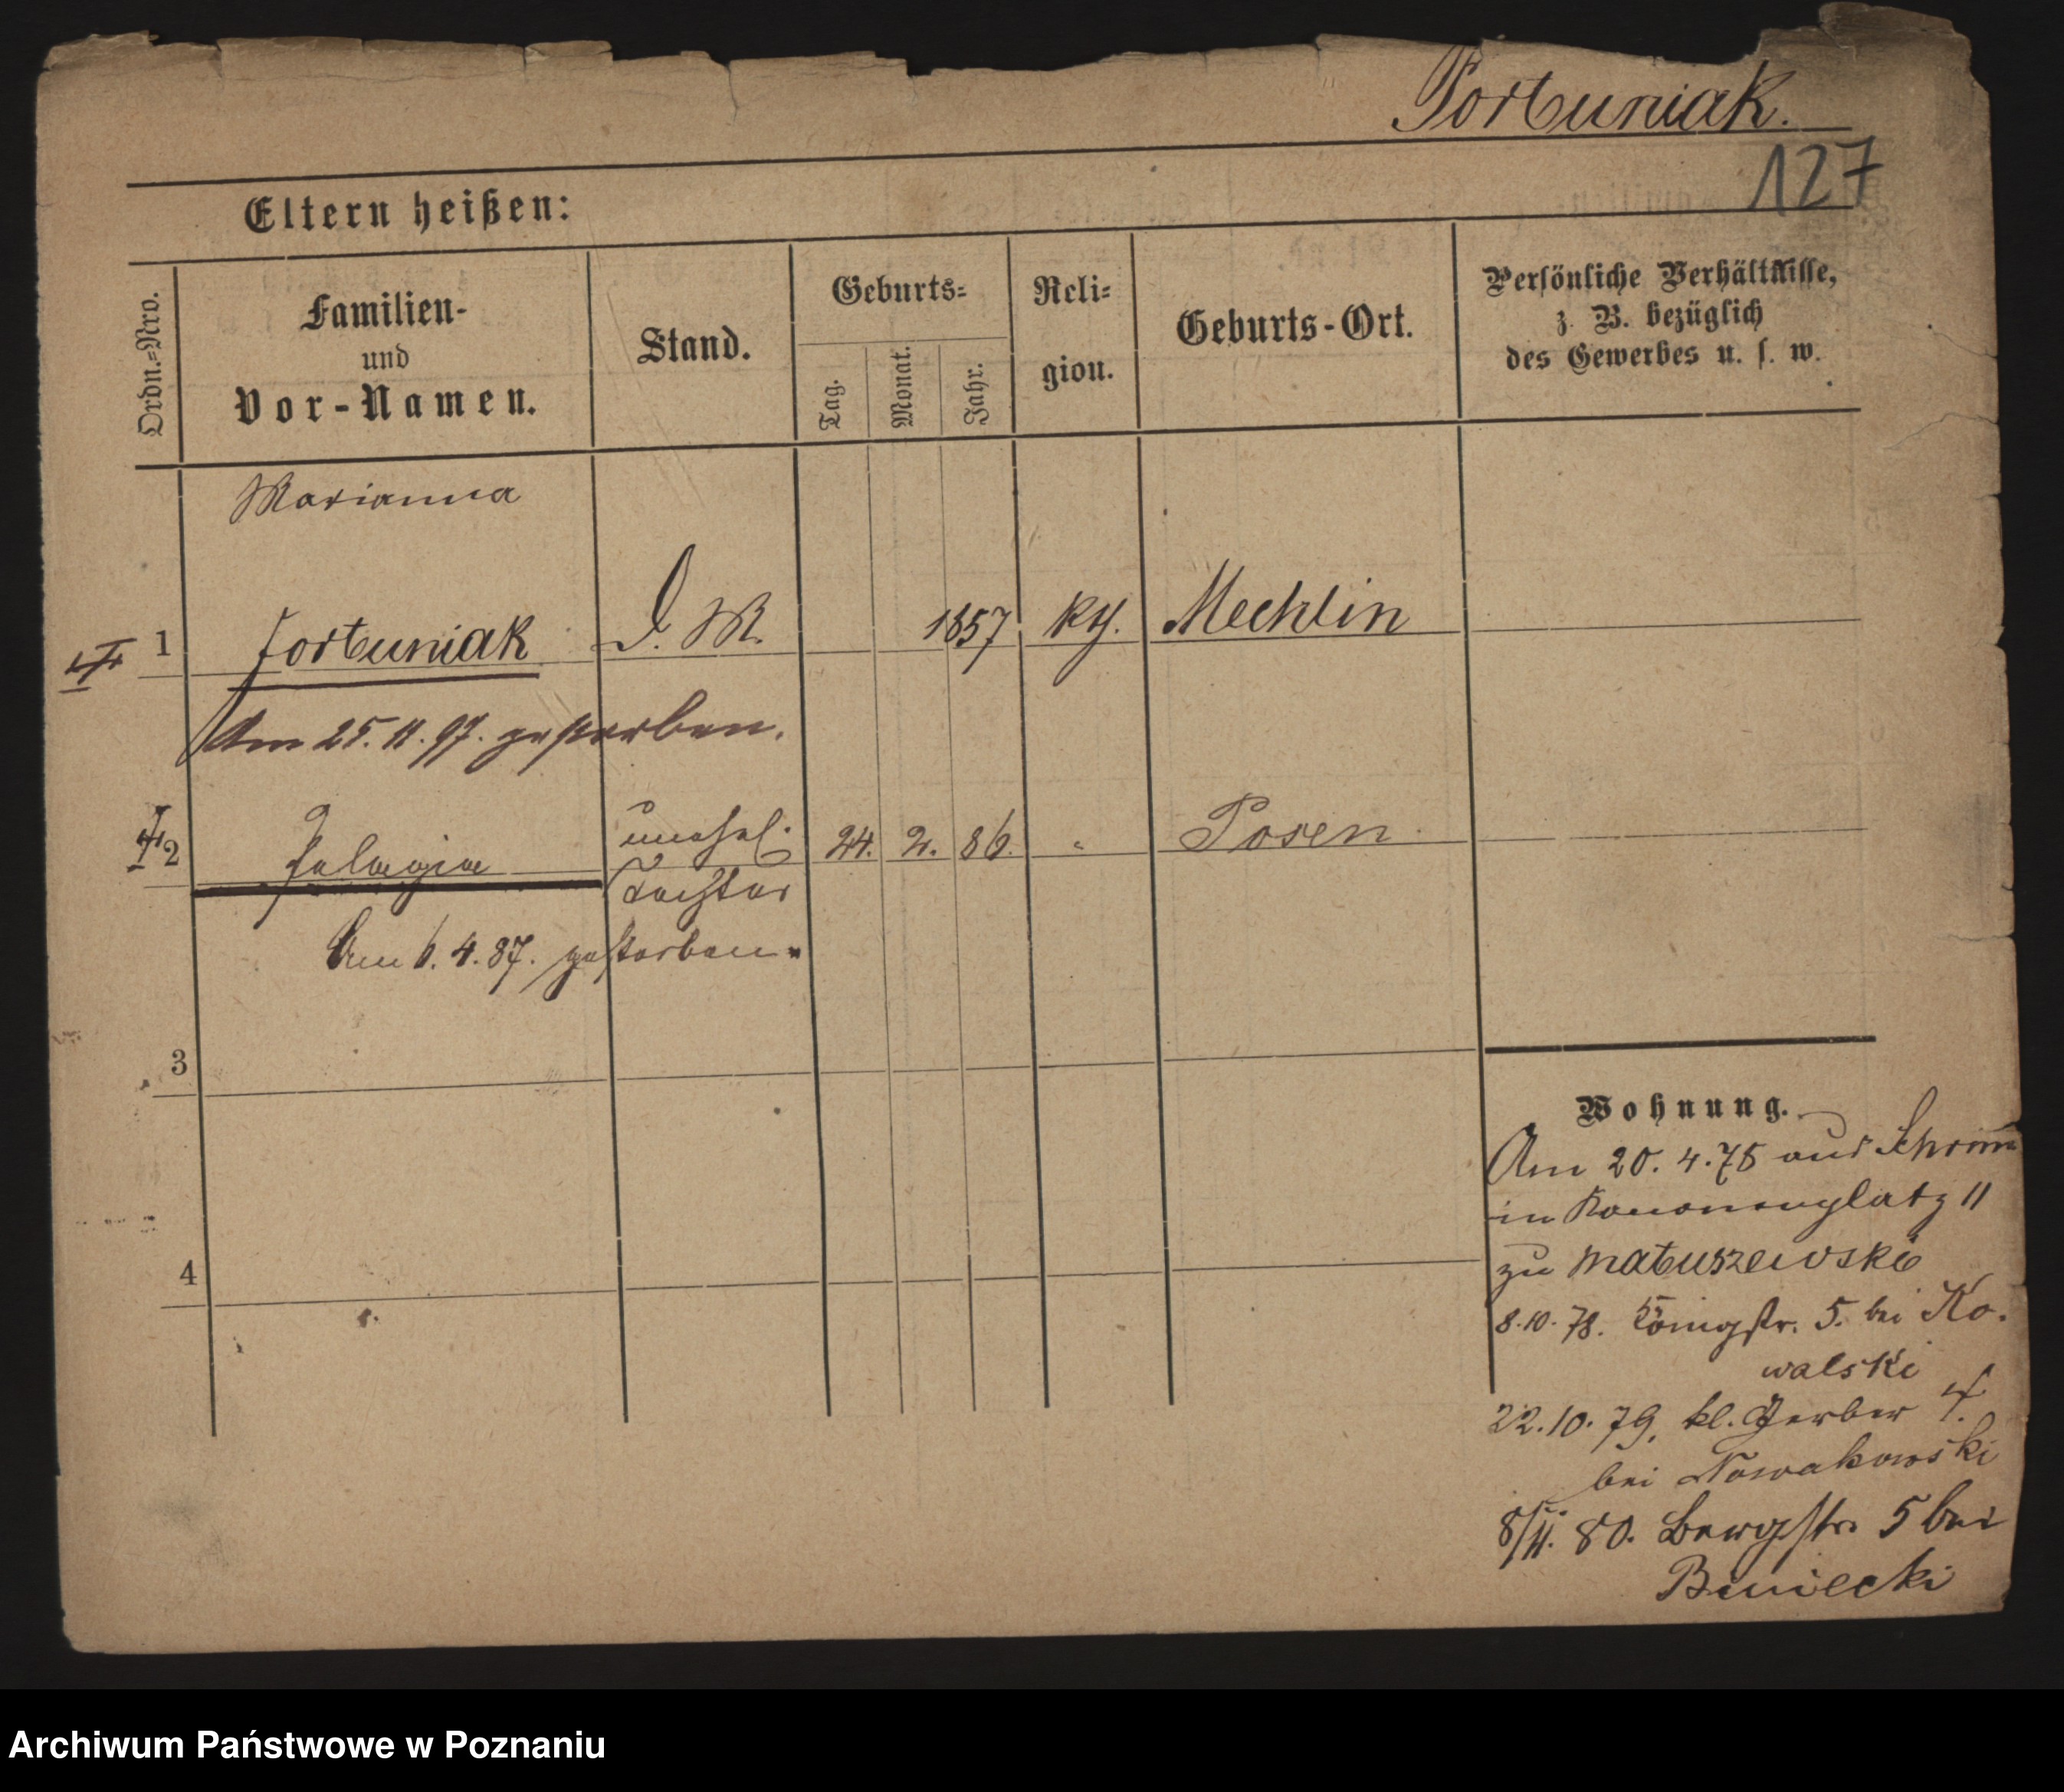 Fortuniak.
127
Eltern heißen:
Ordn.=Nro.
Familien-
und
Vor-Namen.
Stand.
Geburts=
Tag.
Monat.
Jahr.
Reli=
gion.
Geburts-Ort.
Persönliche Verhältnisse,
z. B. bezüglich
des Gewerbes u. s. w.
Marianna
1 Fortuniak D. M. 1857 kth. Mechlin
Am 25. 11. 97. gestorben.
2 Pelagia unehel. 24. 2. 86. " Posen
Tochter
Am 6. 4. 87. gestorben.
3
4
Wohnung.
Am 20. 4. 78 aus Schrimm
in Kanonenplatz 11
zu Matuszewski
8. 10. 78. Königstr. 5. bei Ko-
walski
22. 10. 79. kl. Gerber 4.
bei Nowakowski
80. Bergstr. 5 bei